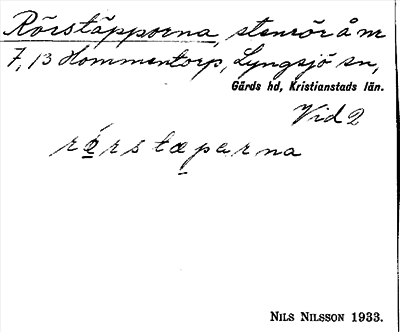 Rörstäpporna, stenrör å nr
7, 13 Hommentorp, Lyngsjö sn,
Gärds hd, Kristianstads län.
Vid 2
rö̱rstæ̱parna
Nils Nilsson 1933.